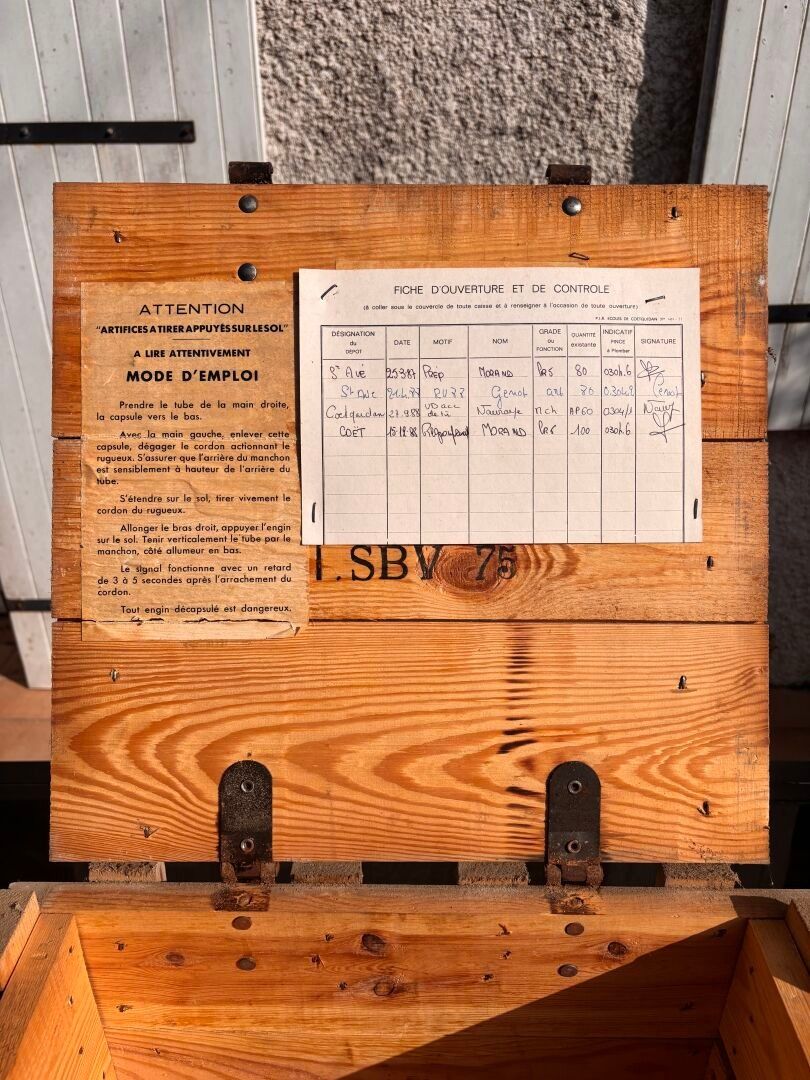 ATTENTION
"ARTIFICES A TIRER APPUYÉS SUR LE SOL"
A LIRE ATTENTIVEMENT
MODE D'EMPLOI
Prendre le tube de la main droite,
la capsule vers le bas.
Avec la main gauche, enlever cette
capsule, dégager le cordon actionnant le
rugueux. S'assurer que l'arrière du manchon
est sensiblement à hauteur de l'arrière du
tube.
S'étendre sur le sol, tirer vivement le
cordon du rugueux.
Allonger le bras droit, appuyer l'engin
sur le sol. Tenir verticalement le tube par le
manchon, côté allumeur en bas.
Le signal fonctionne avec un retard
de 3 à 5 secondes après l'arrachement du
cordon.
Tout engin décapsulé est dangereux.
FICHE D'OUVERTURE ET DE CONTROLE
(à coller sous le couvercle de toute caisse et à renseigner à l'occasion de toute ouverture)
P.I.R. ECOLES DE COETQUIDAN
DÉSIGNATION du DÉPOT DATE MOTIF NOM GRADE OU FONCTION QUANTITÉ existante INDICATIF PINCE à Plomber SIGNATURE
St AVÉ 25.3.87 Prép MORAND 80 030h6
St Avé Genot 80 Genot
Coetquidan MCh AP60
COËT MORAND 100 030h6
.SBV 75